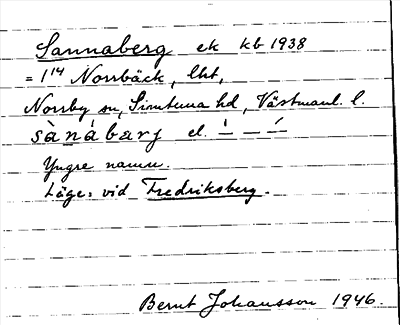 Sannaberg ek kb 1938
= 1¹⁴ Norrbäck, lht,
Norrby sn, Simtuna hd, Västmanl. l.
sànábarj el. ̀— — ́—
Yngre namn.
Läge: vid Fredriksberg.
Bernt Johansson 1946.